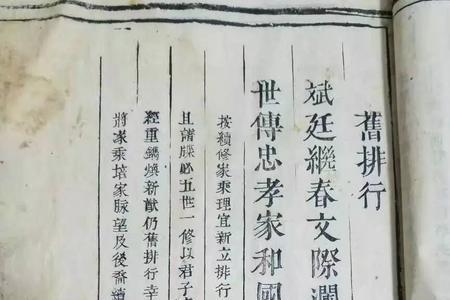 舊排行
斌廷繼春文際瀾
世傳忠孝家和國
按續修家乘理宜新立排行
且諸牒必五世一修以君子
經重鐫煥新猷仍舊排行幸
將家乘培家脉望及後裔